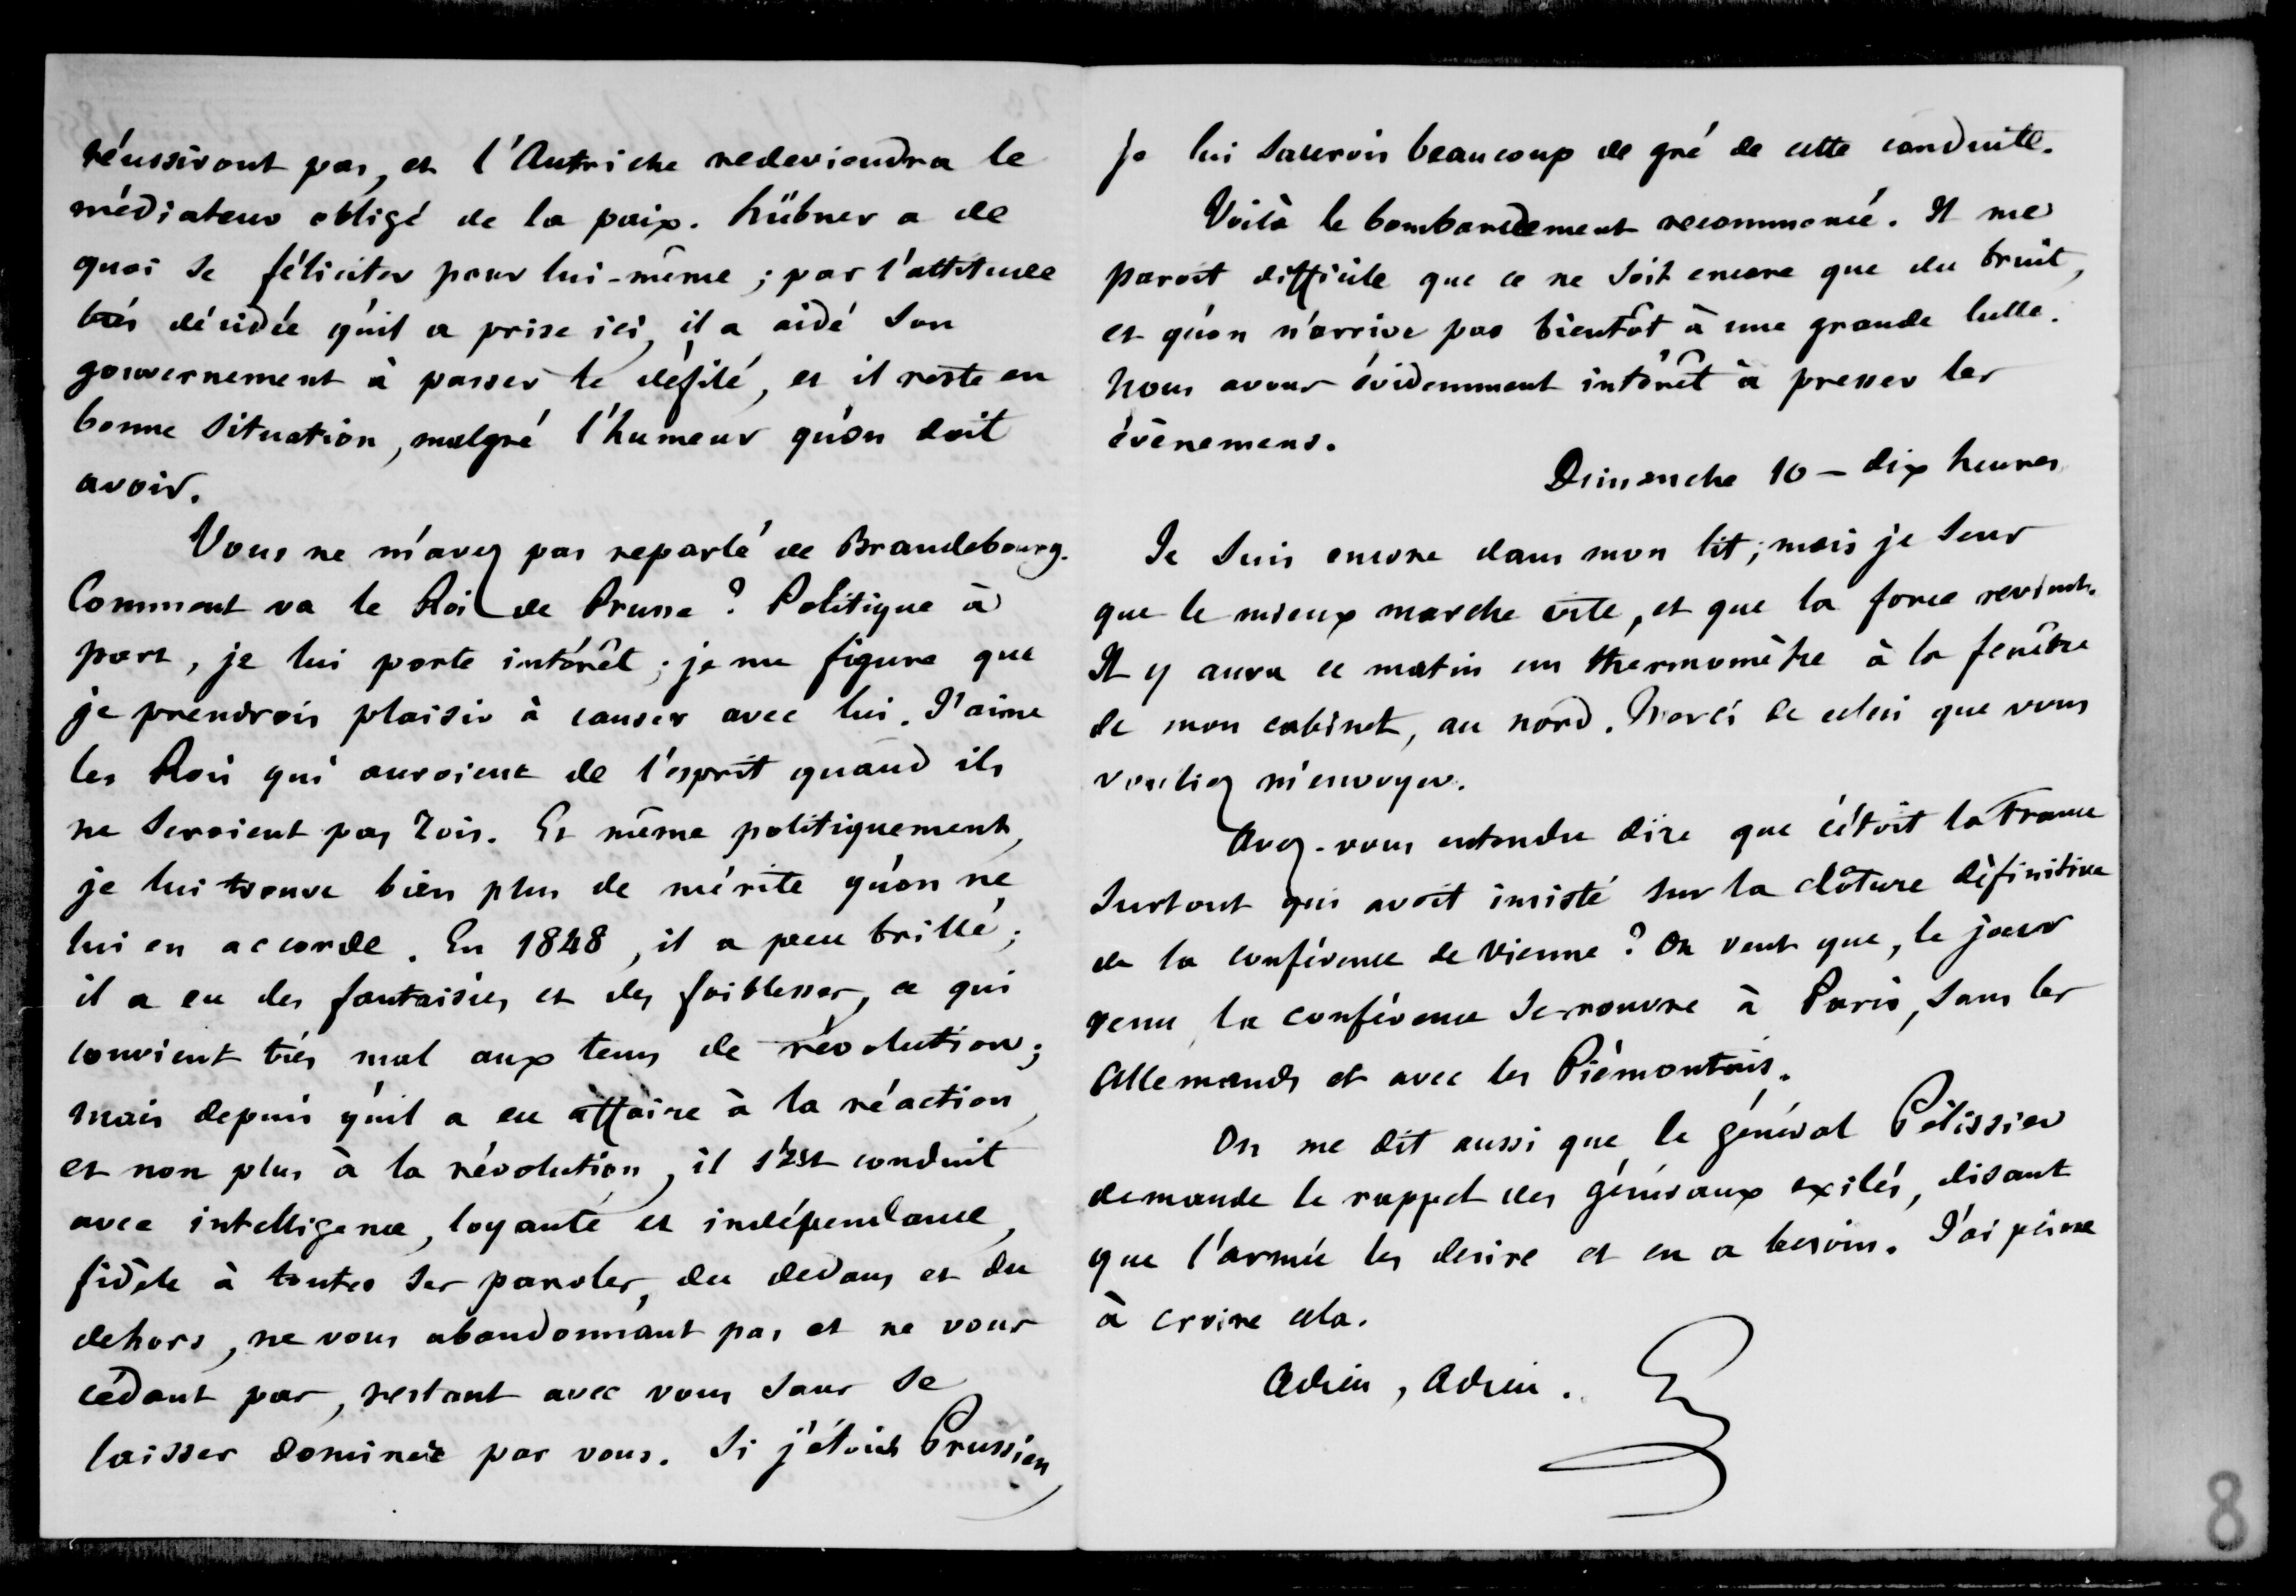 réussiront pas, et l'Autriche redeviendra le
médiateur obligé de la paix. hübner a de
quoi se féliciter pour lui-même ; par l'attitude
très décidée qu'il a prise ici, il a aidé son
gouvernement à passer le défilé, et il reste en
bonne situation, malgré l'humeur qu'on doit
avoir.
Vous ne m'avez pas reparlé de Brandebourg.
Comment va le Roi de Prusse ? Politique à
part, je lui porte intérêt ; je me figure que
je prendrois plaisir à causer avec lui. J'aime
les Rois qui auroient de l'esprit quand ils
ne seroient pas rois. Et même politiquement,
je lui trouve bien plus de mérite qu'on ne
lui en accorde. En 1848, il a peu brillé ;
il a eu des fantaisies et des foiblesses, ce qui
convient très mal aux tems de révolution ;
mais depuis qu'il a eu affaire à la réaction,
et non plus à la révolution, il s'est conduit
avec intelligence, loyauté et indépendance,
fidèle à toutes ses paroles, du dedans et du
dehors, ne vous abandonnant pas et ne vous
cédant pas, restant avec vous sans se
laisser dominer par vous. Si j'étois Prussien,
je lui saurois beaucoup de gré de cette conduite.
Voilà le bombardement recommencé. Il me
paroit difficile que ce ne soit encore que du bruit,
et qu'on n'arrive pas bientôt à une grande lutte.
Nous avons évidemment intérêt à presser les
évènemens.
Dimanche 10 - dix heures
Je suis encore dans mon lit ; mais je sens
que le mieux marche vite, et que la force revient.
Il y aura ce matin un thermomètre à la fenêtre
de mon cabinet, au nord. Merci de celui que vous
vouliez m'envoyer.
Avez-vous entendu dire que c'étoit la France
surtout qui avoit insisté sur la clôture définitive
de la conférence de Vienne ? On veut que, le jour
venu, la conférence se rouvre à Paris, sans les
Allemands et avec les Piémontais.
On me dit aussi que le général Pélissier
demande le rappel des généraux exilés, disant
que l'armée les desire et en a besoin. J'ai peine
à croire cela.
Adieu, Adieu.
8